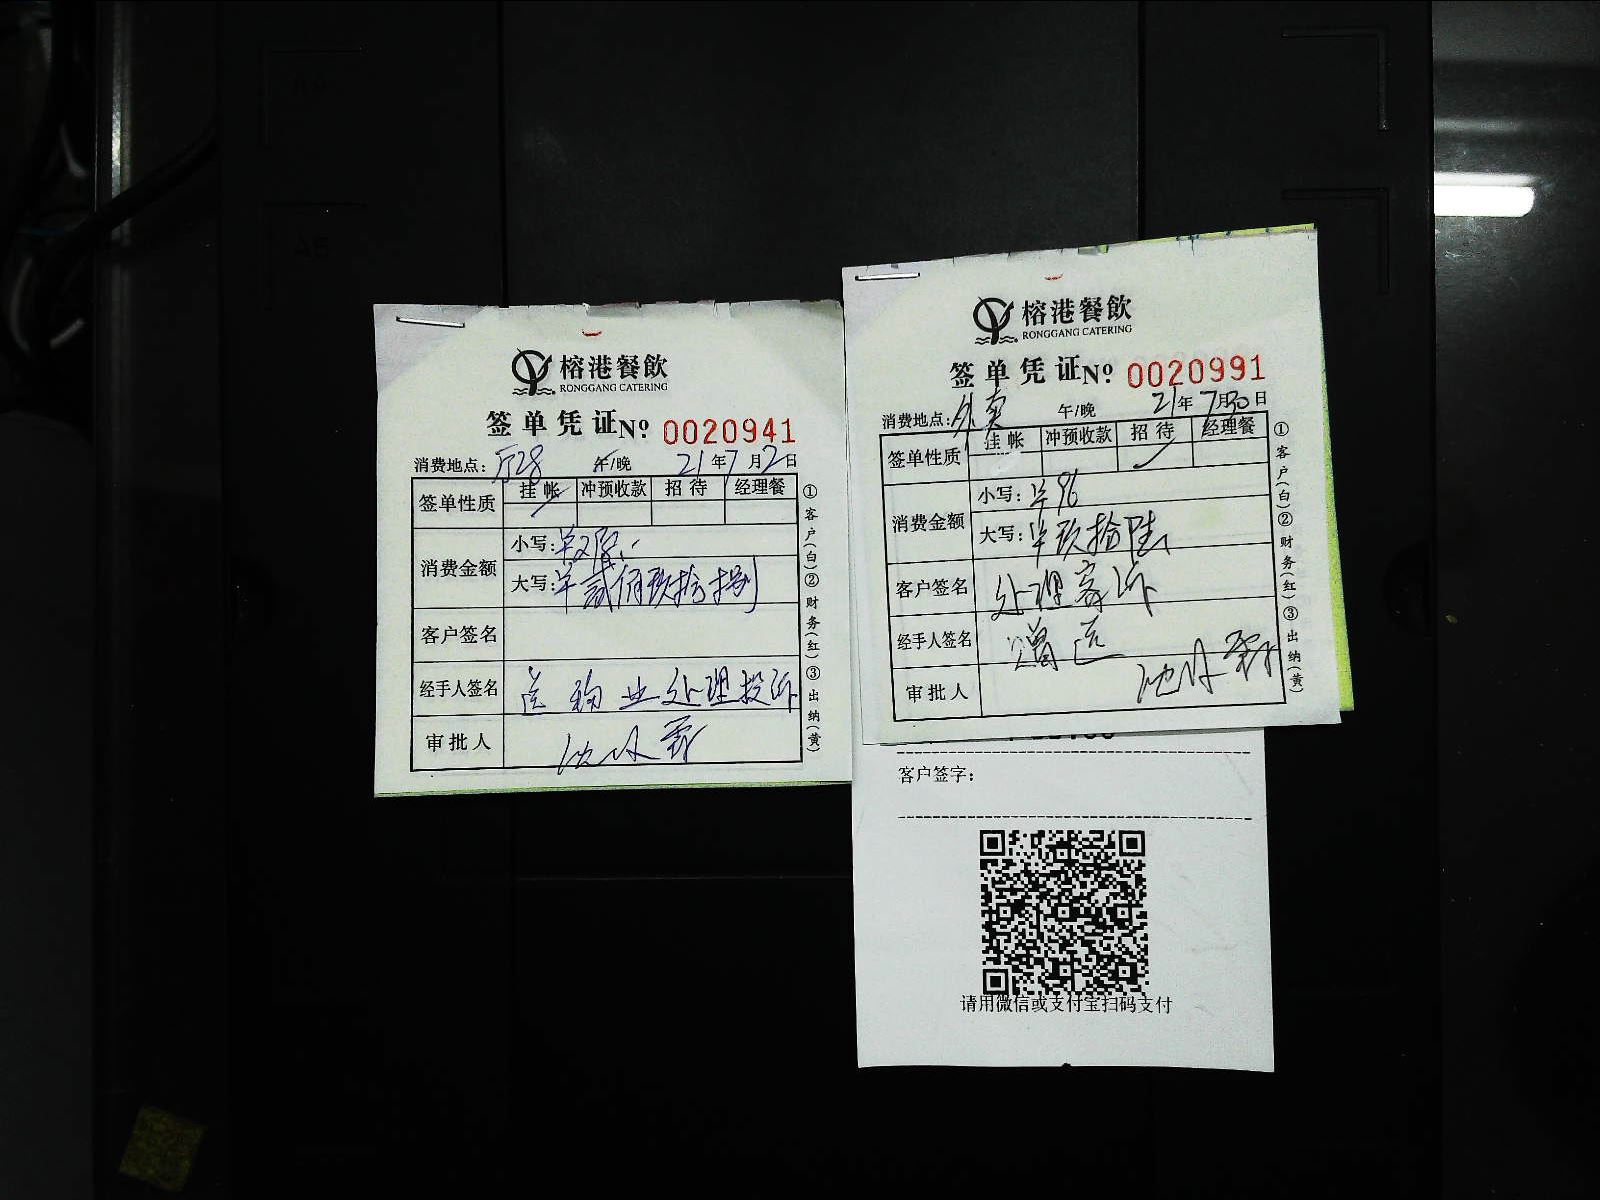 榕港餐飲
RONGGANG CATERING
签单凭证 Nº 0020941
消费地点：厅28 午/晚 21年7月2日
签单性质 挂帐 冲预收款 招待 经理餐
消费金额 小写：
大写：半贰佰玖拾捌
客户签名
经手人签名 物业处理投诉
审批人
①客户(白)②财务(红)③出纳(黄)
榕港餐飲
RONGGANG CATERING
签单凭证 Nº 0020991
消费地点：外卖 午/晚 21年7月30日
签单性质 挂帐 冲预收款 招待 经理餐
消费金额 小写：半96
大写：半玖拾陆
客户签名 处理客诉
经手人签名 赠送
审批人
①客户(白)②财务(红)③出纳(黄)
客户签字：
请用微信或支付宝扫码支付